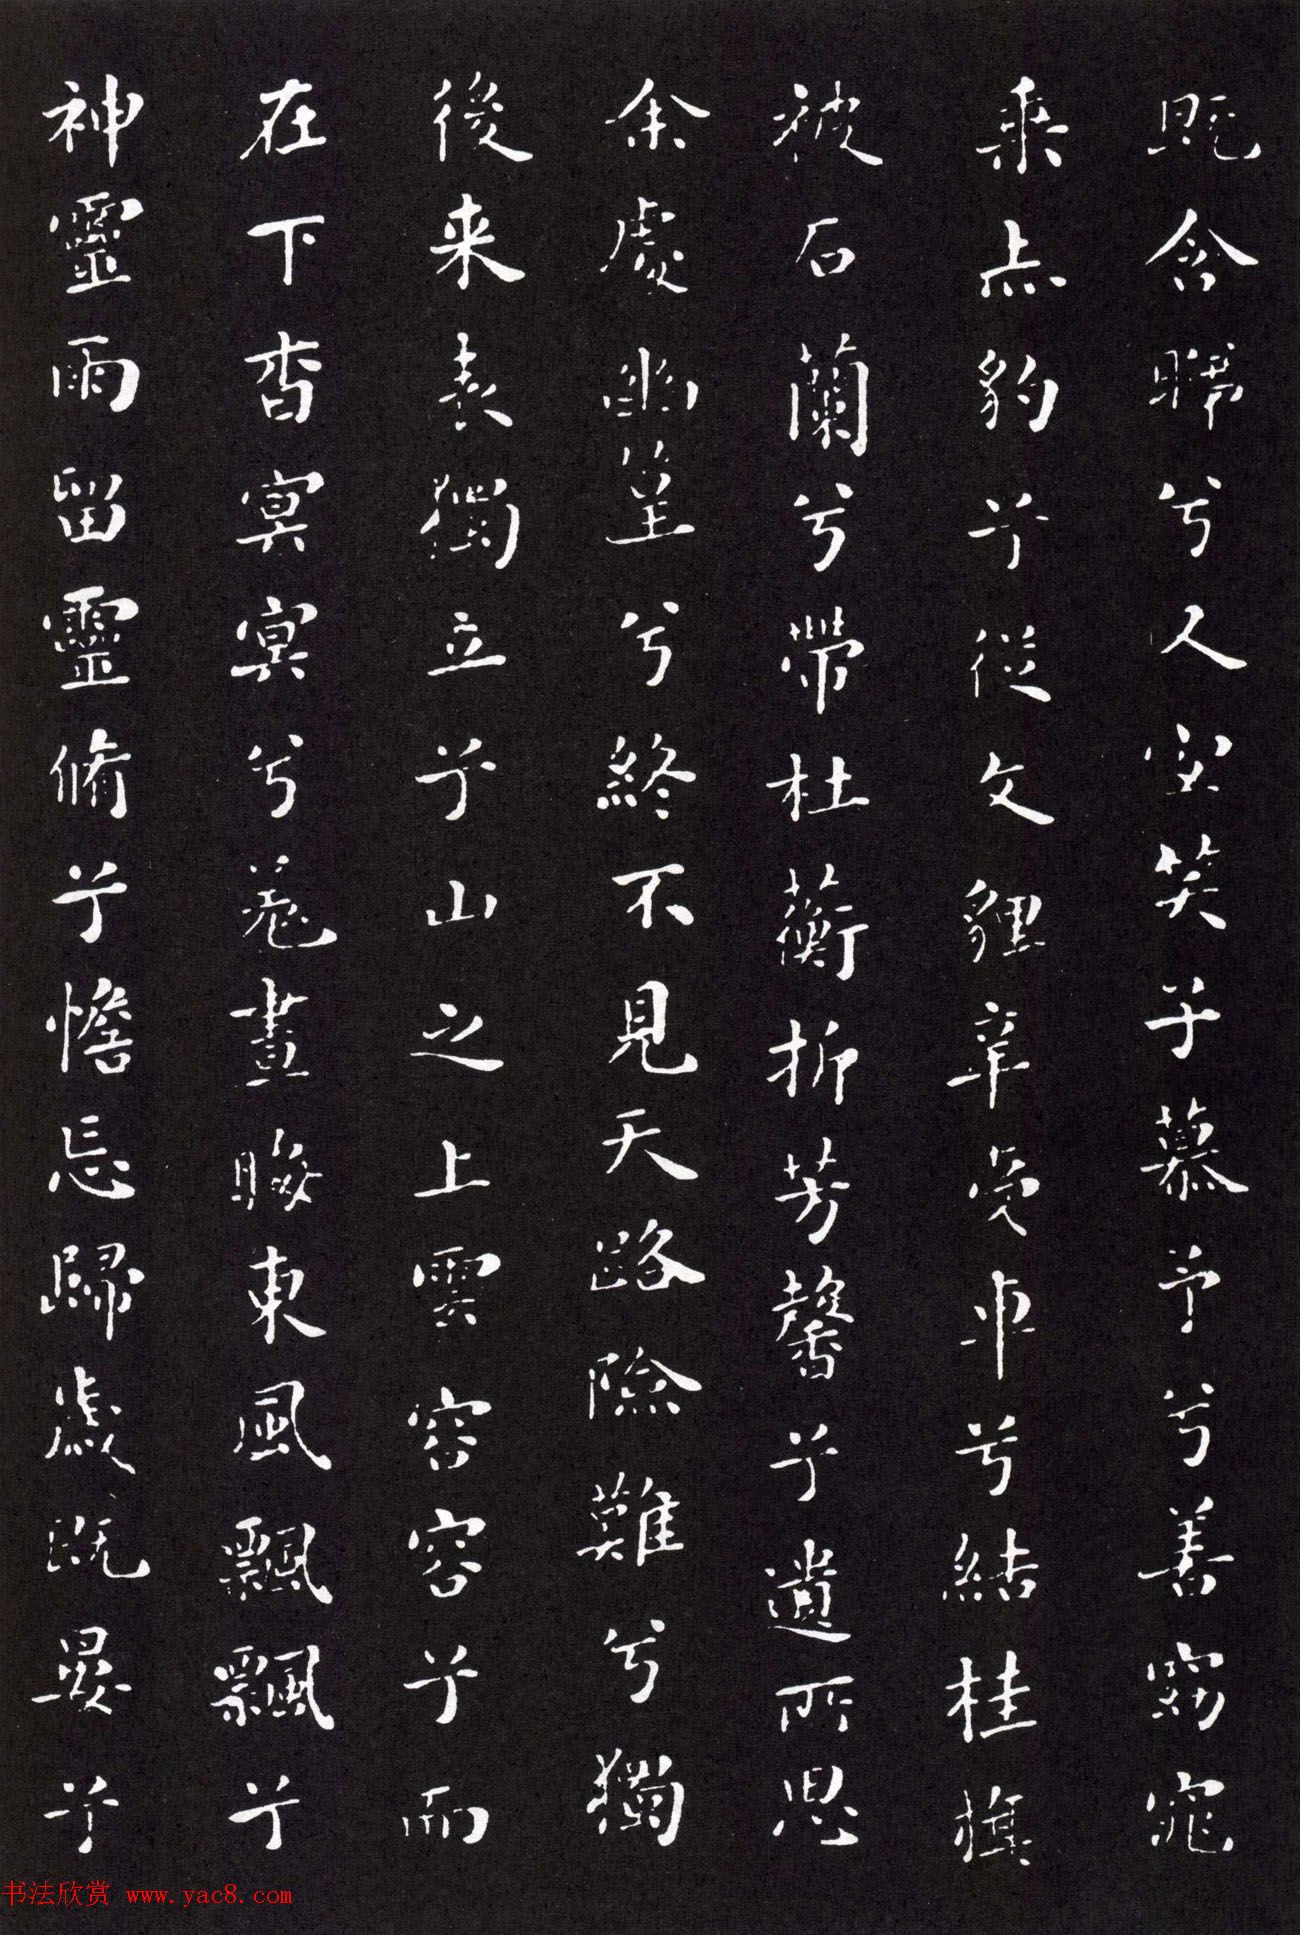 既含睇兮又宜笑子慕予兮善窈窕
乘赤豹兮從文貍辛夷車兮結桂旗
被石蘭兮帶杜蘅折芳馨兮遺所思
余處幽篁兮終不見天路險難兮獨
後来表獨立兮山之上雲容容兮而
在下杳冥冥兮羌晝晦東風飄飄兮
神靈雨留靈脩兮憺忘歸歲既晏兮
书法欣赏 www.yac8.com